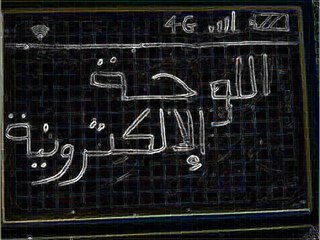 4G
اللوحة
الإلكترونية